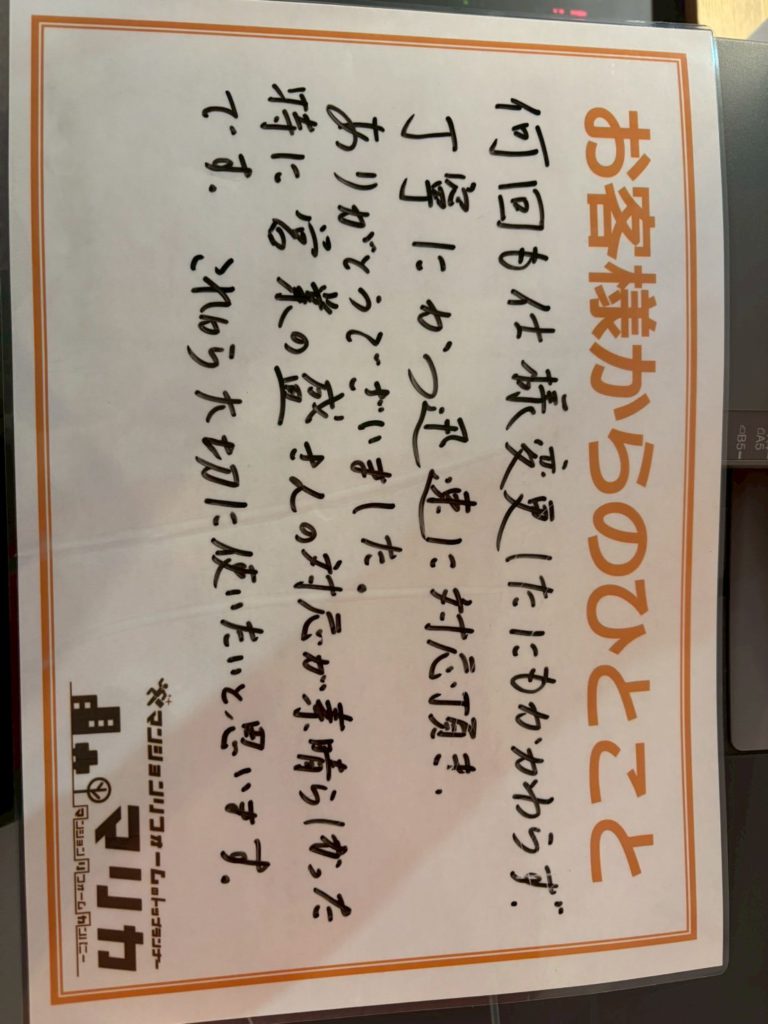 お客様からのひとこと
何回も仕様変更したにもかかわらず、
丁寧にかつ迅速に対応頂き、
ありがとうございました。
特に営業の盛さんの対応が素晴らしかった
です。これから大切に使いたいと思います。
マンションリフォームのトップランナー
マリカ
マンションリフォームカンパニー